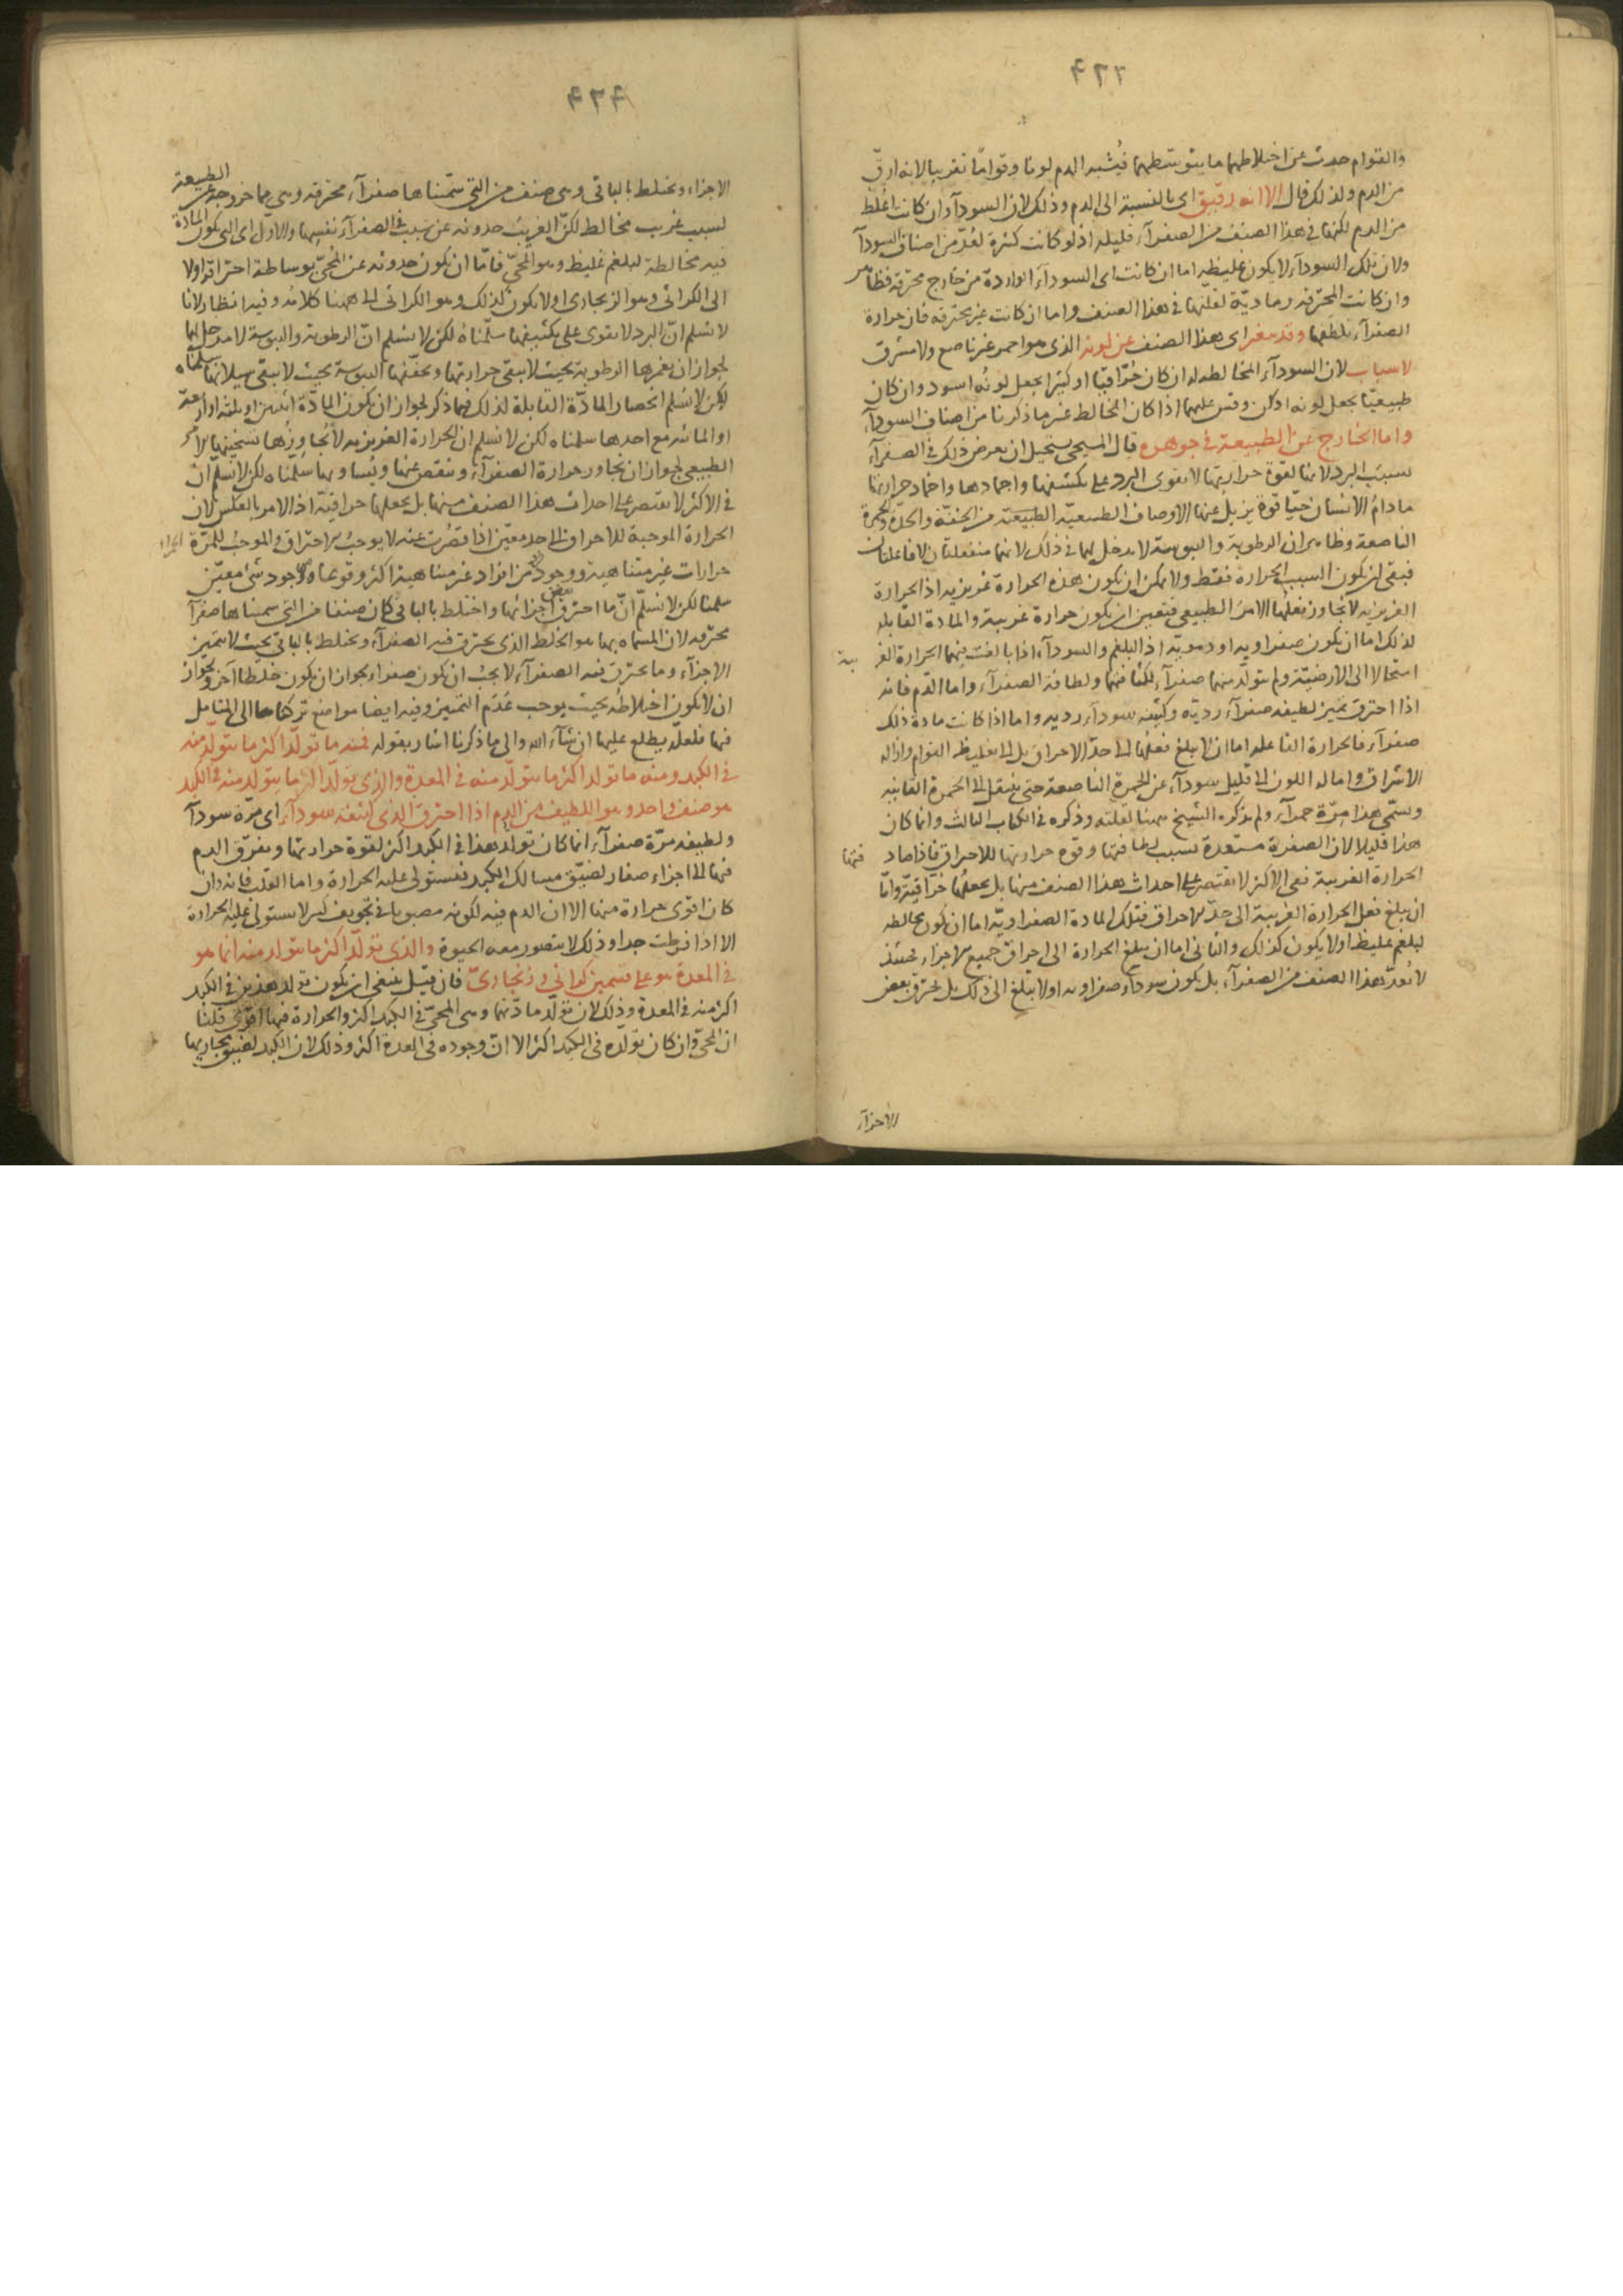 ٤٢٣
والقوام حدث عن اختلاطهما ما يتوسطهما فيُشبه الدم لونا وقوامًا تقريبا لانه ارقّ
من الدم ولذلك قال الا انه رقيق اى بالنسبة الى الدم وذلك لان السودآء وان كانت اغلظ
من الدم لكنها فى هذا الصنف من الصفرآء قليلة اذ لو كانت كثيرة لعُدّ من اصناف السودآء
ولان تلك السودآء لا يكون غليظة اما ان كانت اى السودآء الواردة من خارج محترقة فظاهر
وان كانت المحترقة رماديّة لقلّتها فى هذا الصنف واما ان كانت غير محترقة فلان حرارة
الصفرآء يلطّفها وقد يتغير اى هذا الصنف عن لونه الذى هو احمر غير ناصع ولا مشرق
لاسباب لان السودآء المخالطة له ان كان حُرّاقيّا او كثيرا يجعل لونُه اسود وان كان
طبيعيّا يجعل لونه ادكن وقس عليهما اذا كان المخالط غير ما ذكرنا من اصناف السودآء
واما الخارج عن الطبيعة فى جوهره قال المسيحى يستحيل ان يعرض ذلك فى الصفرآء
بسبب البرد لانها لقوة حرارتها لا يقوى البرد على تكثيفها واجمادها واخماد حرارتها
ما دامُ الانسان حيّا قوة يزيل عنها الاوصاف الطبيعيّة من الخفّة والحدّة والحمرة
الناصعة وظاهر ان الرطوبة واليبوسة لا مدخل لهما فى ذلك لانهما منفعلتان لا فاعلتان
فبقى ان يكون السبب الحرارة فقط ولا يمكن ان يكون هذه الحرارة غريزية اذ الحرارة
الغريزية لا تجاوز بفعلها الامرَ الطبيعى فتعين ان يكون حرارة غريبة والمادة القابلة
لذلك اما ان يكون صفراوية او دمويّة اذ البلغم والسودآء اذا بالغت فيهما الحرارة الغر يبة
استحالا الى الارضيّة ولم يتولّد منهما صفرآء لكثافتهما ولطافة الصفرآء واما الدّم فانه
اذا احترق تميز لطيفه صفرآء رديّة وكثيفه سودآء ردية واما اذا كانت مادة ذلك
صفرآء فالحرارة الفاعلة اما ان لا يبلغ فعلُها الى حدّ الاحراق بل الى تغليظ القوام وازالة
الاشراق وامالة اللون الى قليل سودآء عن الحمرة الناصعة حتى ينتقل الى الحمرة القانية
وسمّى هذا مِرّة حمرآء ولم يذكره الشيخ ههنا لقلته وذكره فى الكتاب الثالث وانما كان
هذا قليلا لان الصفرة مستعدة بسبب لطافتها وقوة حرارتها للاحراق فاذا صاد فتها
الحرارة الغريبة ففى الاكثر لا يقتصر على احداث هذا الصنف منها بل يجعلها حُرّاقيّة وامّا
ان يبلغ فعل الحرارة الغريبة الى حدّ الاحراق فتلك المادة الصفراويّة اما ان يكون يخالطه
بلغم غليظ اولا يكون كذلك والثانى اما ان يبلغ الحرارة الى احراق جميع الاجزاء فحينئذ
لا يُعدّ هذا الصنف من الصفرآء بل يكون سودآء صفراوية اولا يبلغ الى ذلك بل يحترق بعض
الاجزآء
٤٢٤
الاجزاء ويختلط بالباقى وهى صنف من التى سمّيناها صفرآء محترقة وهى مما خروجه عن الطبيعة
لسبب غريب مخالط لكنّ الغريب حدوثه عن سبب فى الصفرآء نفسِها والاول اى التى يكون المادة
فيه مخالطة لبلغم غليظ وهو المحّىّ فامّا ان يكون حدوثه عن المُحّىّ بوساطة احتراقه اولا
الى الكراثى وهو الزنجارى اولا يكون كذلك وهو الكراثى الى ههنا كلامُه وفيه انظار لانا
لا نسلم انّ البرد لا يقوى على تكثيفها سلّمناهُ لكن لا نسلم انّ الرطوبة واليبوسة لا مدخل لهما
لجواز ان يغمرها الرطوبة بحيث لا يبقى حرارتها ويجففها اليبوسة بحيث لا يبقى سيلانها سلّمناه
لكن لا نسلم انحصار المادّة القابلة لذلك فيما ذكر لجواز ان يكون المادّة اثنين او ثلثة او اربعة
او المائية مع احدها سلمناه لكن لا نسلم ان الحرارة الغريزية لا تجاوزُها تسخينها الامر
الطبيعى لجواز ان يجاوز حرارة الصفرآء وينقص عنها ويُساويها سلّمناه لكن لا نسلّم انّ
فى الاكثر لا يقتصر على احداث هذا الصنف منها بل يجعلها حراقية اذ الامر بالعكس لان
الحرارة الموجبة للاحراق الى حد معيّن اذا قصُرت عنه لا يوجبُ الاحتراق والموجبُ للمرّة الحمراء
حرارات غير متناهية ووجود فرد من افراد غير متناهية اكثر وقوعا من وجود شئ معيّن
سلمنا لكن لا نسلّم انّ ما احترق بعض اجزائها واختلط بالباقى كان صنفا من التى سميناها صفرآء
محترقة لان المسماه بها هو الخلط الذى يحترق فيه الصفرآء ويختلط بالباقى بحيث لا يتميز
الاجزآء وما يحترق فيه الصفرآء لا يجبُ ان يكون صفراء لجواز ان يكون خلطا آخر ولجواز
ان لا يكون اختلاطُه بحيث يوجب عَدَم التميز وفيه ايضا مواضع تركناها الى المتامل
فيها فلعلّه يطلع عليها ان شآء الله والى ما ذكرنا اشار بقوله فمنه ما تولّد اكثر ما يتولد منه
فى الكبد ومنه ما تولد اكثر ما يتولّد منه فى المعدة والذى تولّد اكثر ما يتولد منه فى الكبد
هو صنف واحد وهو اللطيف من الدم اذا احترق الذى كثيفه سودآء اى مرّة سودآء
ولطيفه مرّة صفرآء انما كان تولّد هذا فى الكبد اكثر لقوة حرارتها وتفرّق الدم
فيها الى اجزاء صغار لضيّق مسالك الكبد فيستولى عليه الحرارة واما القلب فانه وان
كان اقوى حرارة منها الا ان الدم فيه لكونه مصبوبا فى تجويف كبير لا يستولى عليه الحرارة
الا اذا افرطت جدا وذلك لا يتصور معه الحيوة والذى تولّد اكثر ما يتولد منه انما هو
فى المعدة هو على قسمين كراثى وزنجارىّ فان قيل ينبغى ان يكون تولد هذين فى الكبد
اكثر منه فى المعدة وذلك لان تولّد مادّتهما وهى المحىّ فى الكبد اكثر والحرارة فيها اقوى قلنا
ان المحىّ وان كان تولّده فى الكبد اكثر الا انّ وجوده فى المعدة اكثر وذلك لان الكبد لضيق مجاريها